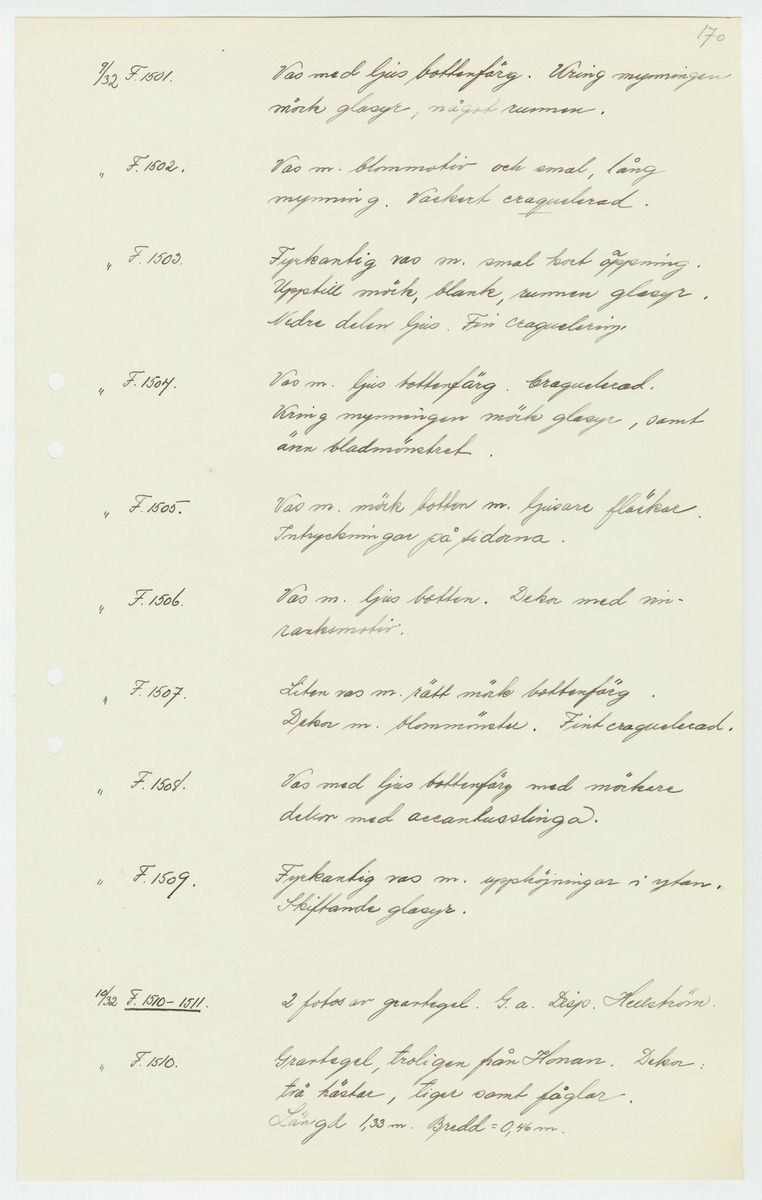 170
9/32 F. 1501. Vas med ljus bottenfärg. Kring mynningen
mörk glasyr, något runnen.
" F. 1502. Vas m. blommotiv och smal, lång
mynning. Vackert craquelerad.
" F. 1503. Fyrkantig vas m. smal kort öppning.
Upptill mörk, blank, runnen glasyr.
Nedre delen ljus. Fin craquelering.
" F. 1504. Vas m. ljus bottenfärg. Craquelerad.
Kring mynningen mörk glasyr, samt
även bladmönstret.
" F. 1505. Vas m. mörk botten m. ljusare fläckar.
Intryckningar på sidorna.
" F. 1506. Vas m. ljus botten. Dekor med vin-
ranksmotiv.
" F. 1507. Liten vas m. rätt mörk bottenfärg.
Dekor m. blommönster. Fint craquelerad.
" F. 1508. Vas med ljus bottenfärg med mörkare
dekor med accantusslinga.
" F. 1509. Fyrkantig vas m. upphöjningar i ytan.
Skiftande glasyr.
10/32 F. 1510-1511. 2 fotos av gravtegel. G. a. Disp. Hellström.
" F. 1510. Gravtegel, troligen från Honan. Dekor:
två hästar, tiger samt fåglar.
Längd 1,33 m. Bredd = 0,46 m.